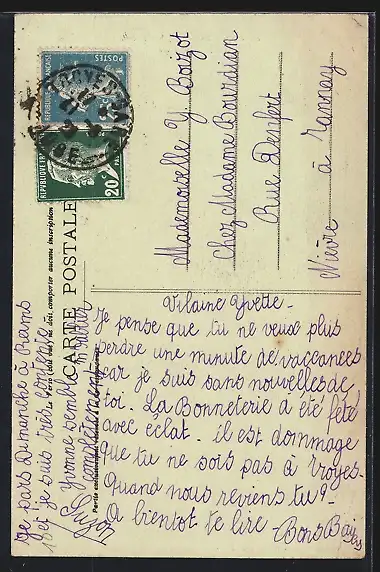 Mademoiselle Y. Bozot
Chez Madame Bourdian
Rue Denfert
à Tannay
Nièvre
CARTE POSTALE
RÉPUBLIQUE FRANÇAISE
POSTES
20
Vilaine Yvette -
Je pense que tu ne veux plus
perdre une minute de vaccances
car je suis sans nouvelles de
toi. La Bonneterie a été fêté
avec éclat. il est dommage
que tu ne sois pas à Troyes.
Quand nous reviens tu ?
A bientôt te lire - Bons Baisers
Je pars Dimanche à Reims
et je suis très contente
Yvonne semble
complètement